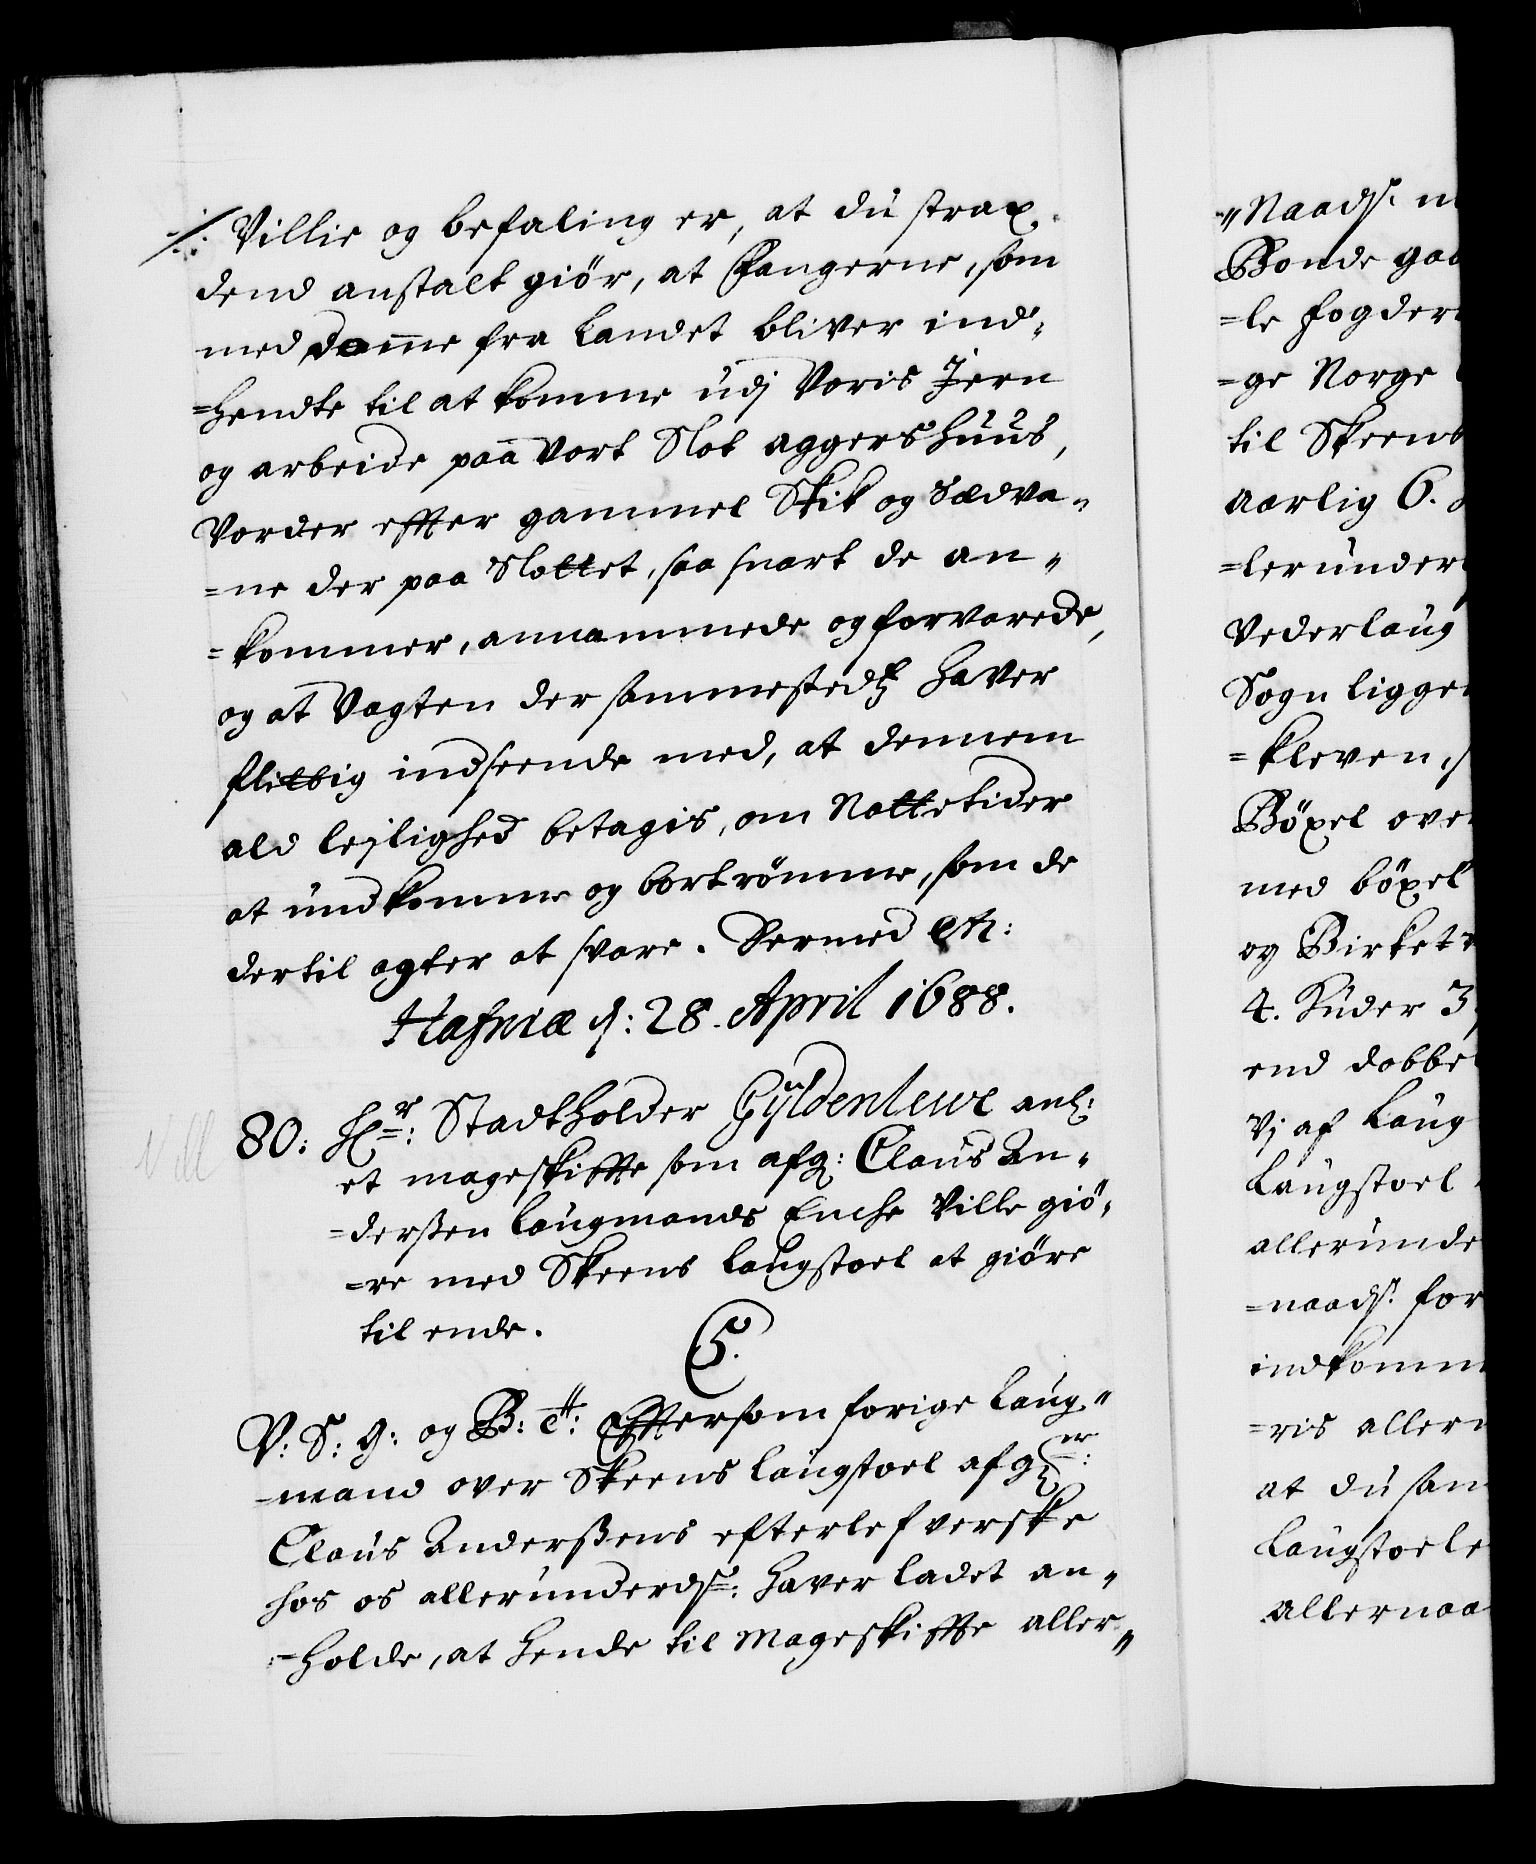 Villie og befaling er, at du strax
dend anstalt giör, at Fangerne, som
med domme fra Landet bliver ind„
=hendte til at komme udj Voris Jern
og arbeide paa Vort Slot aggershuus,
Vorder effter gammel Skik og Sædva„
=ne der paa Slottet, saa snart de an„
=kommer, annammede og forvarede,
og at Vagten der sammestedtz haver
flittig indseende med, at dennem
ald lejlighed betagis, om Nattetider
at undkomme og bortrömme, som de
dertil agter at svare. Dermed etc:
Hafniæ d: 28. April 1688.
80: Hr: Stadtholder Gÿldenlewe anl:
et mageskiffte som afg: Claus An„
=derßen Laugmands Enche Ville giö„
=re med Skeens Laugstoel at giöre
til ende.
C5.
V: S: G: og B: etc: Efftersom forige Laug„
=mand over Skeens Laugstoel afgl:
Claus Anderßens efterlefverske
hos os allerunderdst: haver ladet an„
=holde, at hende til Mageskiffte aller„
„Naadst. n
Bonde god
=le fogder
=ge Norge
til Skeens
Aarlig 6.
=lerunder
Vederlaug
Sogn ligge
=kleven, s
Böxel ove
med böxel
og Birket
4. Huder 3
end dobbe
Vj af Laug
Laugstoel
allerunde
=naadst. for
indkomm
=ris allern
at du sam
Laugstoele
Allernaa